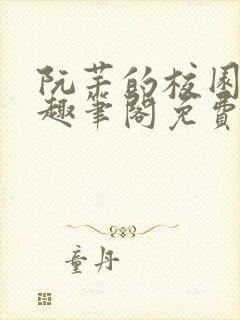 阮芊的校园
趣笔阁免费
童丹